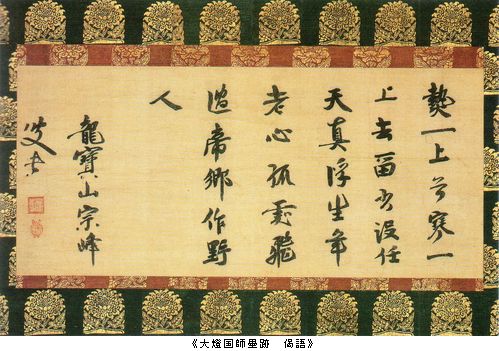 熱一上兮寒一
上去留出没任
天真浮生年
老心孤雲飛
過帝郷作野
人
龍寶山宗峰
叟書
《大燈国師墨跡　偈語》